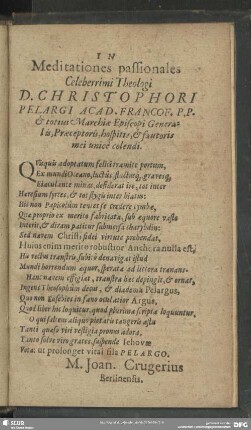 IN
Meditationes passionales
Celeberrimi Theologi
D. CHRISTOPHORI
PELARGI ACAD. FRANCOF. P.P.
& totius Marchiæ Episcopi Genera-
lis, Præceptoris, hospitis, & fautoris
mei unicè colendi.
Quisquis adoptatum felici tramite portum,
Ex mundi Oceano, luctus, gravesq
minas, desiderat ire, tot inter
Hæresium syrtes, & tot stygii inter hiatus:
Ille non Papicolum levet se credere cymbæ,
Quæ proprio ex merito fabricata, sub æquore vasto
& diram patitur submersa charybdin:
Sed navem Christi fidei virtute prehendat,
Huius enim merito robustior Anchora nulla est,
Ha rectum transtris subitò denavigat istud
Mundi horrendum æquor, sperata ad littora transnans.
Hanc navem effigiat, transtra hæc depingit, & ornat,
Ingens Theosophûm decus, & diadema Pelargus,
Quo non Eusebies in fano oculatior Argus,
Quod liber hic loquitur, quod plurima scripta loquuntur,
O qui saltem aliquo pietatis tangeris æstu
Tanti quæso viri vestigia pronus adora,
Tanto solve viro grates, suspende Iehovæ
Vota: ut prolonget vital fila PELARGO.
M. Joan. Crugerius
Berlinensis.
SLUB
DFG